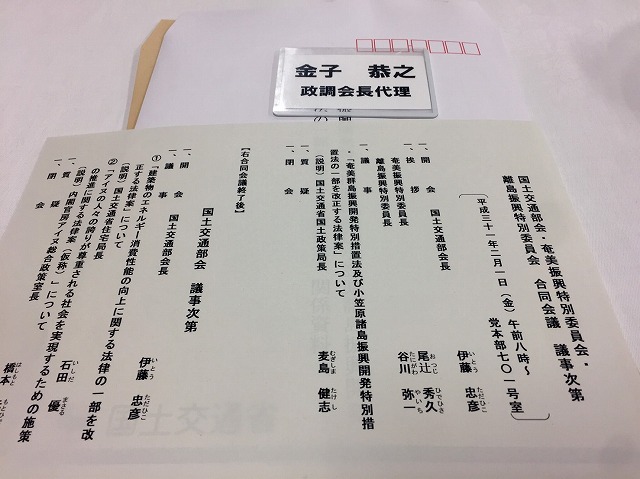 金子 恭之
政調会長代理
国土交通部会・奄美振興特別委員会・
離島振興特別委員会 合同会議 議事次第
平成三十一年二月一日（金）午前八時～
党本部七〇一号室
一、開 会 国土交通部会長 伊藤 忠彦
いとう ただひこ
一、挨 拶
奄美振興特別委員長 尾辻 秀久
おつじ ひでひさ
離島振興特別委員長 谷川 弥一
たにがわ やいち
一、議 事
・「奄美群島振興開発特別措置法及び小笠原諸島振興開発特別措
置法の一部を改正する法律案」について
（説明）国土交通省国土政策局長 麦島 健志
むぎしま たけし
一、質 疑
一、閉 会
【右合同会議終了後】
国土交通部会 議事次第
一、開 会 国土交通部会長 伊藤 忠彦
いとう ただひこ
一、議 事
①「建築物のエネルギー消費性能の向上に関する法律の一部を改
正する法律案」について
（説明）国土交通省住宅局長 石田 優
いしだ まさる
②「アイヌの人々の誇りが尊重される社会を実現するための施策
の推進に関する法律案（仮称）」について
（説明）内閣官房アイヌ総合政策室長 橋本
はしもと もとひ
一、質 疑
一、閉 会